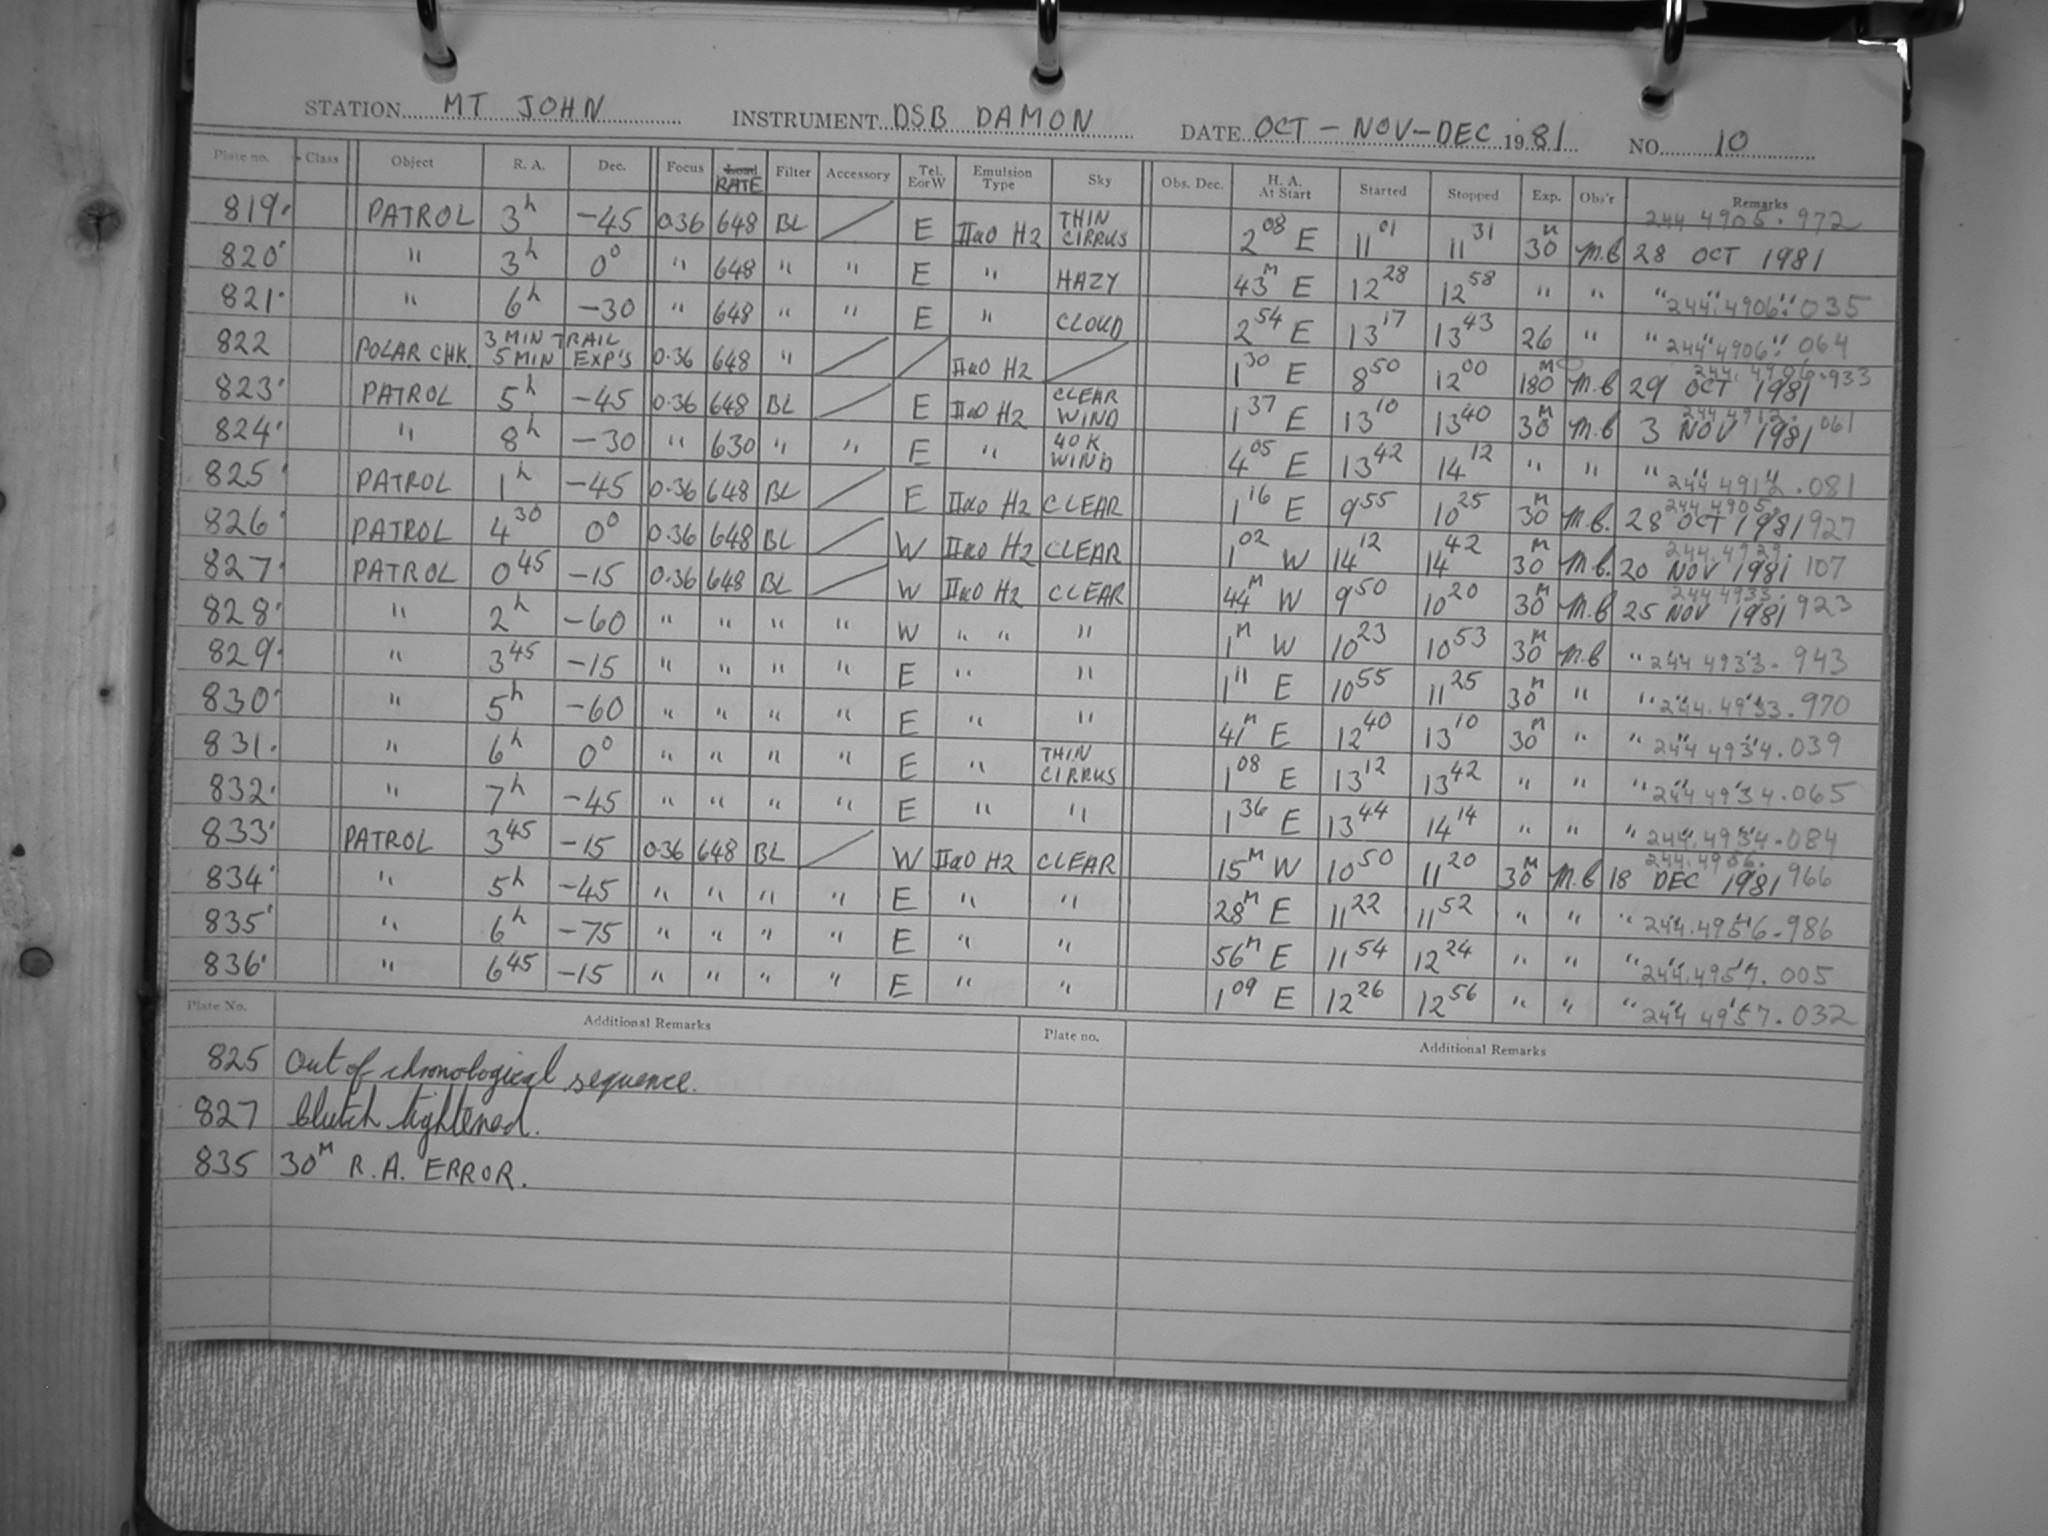 STATION MT JOHN INSTRUMENT DSB DAMON DATE OCT - NOV - DEC 1981 NO. 10
Plate no. Class Object R. A. Dec. Focus RATE Filter Accessory Tel. E or W Emulsion Type Sky Obs. Dec. H. A. At Start Started Stopped Exp. Obs'r Remarks
819 PATROL 3h -45 0.36 648 BL E IIaO H2 THIN CIRRUS 2 08 E 11 01 11 31 30M M.B 28 OCT 1981 244 4905.972
820 " 3h 0° " 648 " " E " HAZY 43M E 12 28 12 58 " " " " " 244 4906.035
821 " 6h -30 " 648 " " E " CLOUD 2 54 E 13 17 13 43 26 " " " " 244 4906.064
822 POLAR CHK. 3 MIN TRAIL 5 MIN EXP'S 0.36 648 " IIaO H2 1 30 E 8 50 12 00 180M M.B 29 OCT 1981 244.4906.933
823 PATROL 5h -45 0.36 648 BL E IIaO H2 CLEAR WIND 1 37 E 13 10 13 40 30M M.B 3 NOV 1981 244 4912.061
824 " 8h -30 " 630 " " E " 40K WIND 4 05 E 13 42 14 12 " " " " " 244 4912.081
825 PATROL 1h -45 0.36 648 BL E IIaO H2 CLEAR 1 16 E 9 55 10 25 30M M.B. 28 OCT 1981 244 4905.927
826 PATROL 4 30 0° 0.36 648 BL W IIaO H2 CLEAR 1 02 W 14 12 14 42 30M M.B. 20 NOV 1981 244.4929.107
827 PATROL 0 45 -15 0.36 648 BL W IIaO H2 CLEAR 44M W 9 50 10 20 30M M.B 25 NOV 1981 244 4933.923
828 " 2h -60 " " " " W " " " 1M W 10 23 10 53 30M M.B " " " 244 4933.943
829 " 3 45 -15 " " " " E " " 1 11 E 10 55 11 25 30M " " " " 244.4933.970
830 " 5h -60 " " " " E " " 41M E 12 40 13 10 30M " " " " 244 4934.039
831 " 6h 0° " " " " E " THIN CIRRUS 1 08 E 13 12 13 42 " " " " " 244 4934.065
832 " 7h -45 " " " " E " " 1 36 E 13 44 14 14 " " " " " 244.4934.084
833 PATROL 3 45 -15 0.36 648 BL W IIaO H2 CLEAR 15M W 10 50 11 20 30M M.B 18 DEC 1981 966
834 " 5h -45 " " " " E " " 28M E 11 22 11 52 " " " " " 244.4956.986
835 " 6h -75 " " " " E " " 56M E 11 54 12 24 " " " " " 244.4957.005
836 " 6 45 -15 " " " " E " " 1 09 E 12 26 12 56 " " " " " 244 4957.032
Plate No. Additional Remarks Plate no. Additional Remarks
825 Out of chronological sequence.
827 Clutch tightened.
835 30M R.A. ERROR.